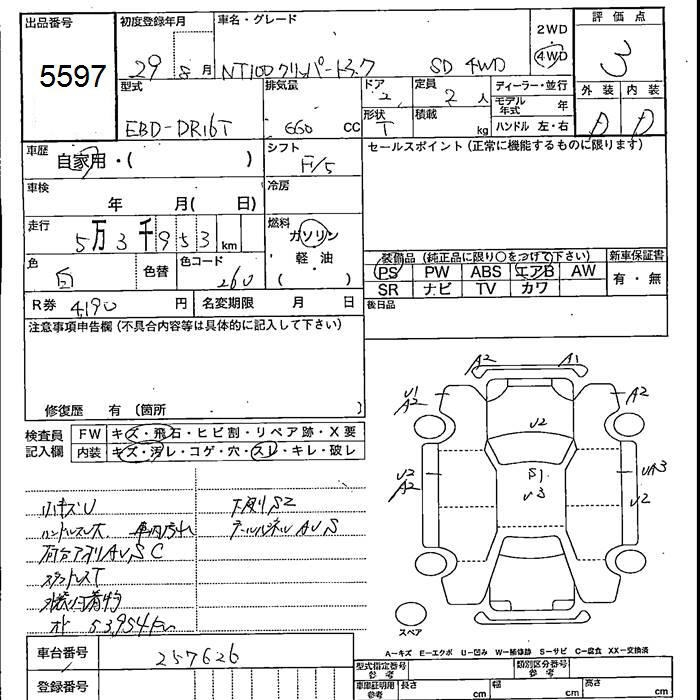 出品番号
5597
初度登録年月
29 8月
車名・グレード
NT100クリッパートラック SD 4WD
2WD
・
4WD
評価点
3
型式
EBD-DR16T
排気量
660 CC
ドア
2
定員
2 人
形状
T
積載
kg
ディーラー・並行
モデル年式 年
ハンドル 左・右
外装 内装
D D
車歴
自家用・( )
シフト
F/5
セールスポイント(正常に機能するものに限ります)
車検
年 月( 日)
冷房
走行
5万3千953km
燃料
ガソリン
軽油
( )
色
白
色替
色コード
260
装備品(純正品に限り○をつけて下さい)
PS PW ABS エアB AW
SR ナビ TV カワ
新車保証書
有・無
R券 4,190 円
名変期限 月 日
後日品
注意事項申告欄(不具合内容等は具体的に記入して下さい)
修復歴 有 (箇所 )
検査員記入欄
FW キズ・飛石・ヒビ割・リペア跡・X要
内装 キズ・汚レ・コゲ・穴・スレ・キレ・破レ
小キズU
下廻りS2
ハンドルスレ大 車内汚れ
テールパネルAU,S
荷台アオリAU,S C
スタットレスT
オド 53,954km
A2 A1
U1
A2
A2
U2
S1
U3
U2
A2
UA3
U2
スペア
A-キズ E-エクボ U-凹み W-補修跡 S-サビ C-腐食 XX-交換済
車台番号
257626
登録番号
型式指定番号
参考
類別区分番号
参考
車庫証明用
参考
長さ cm
幅 cm
高さ cm